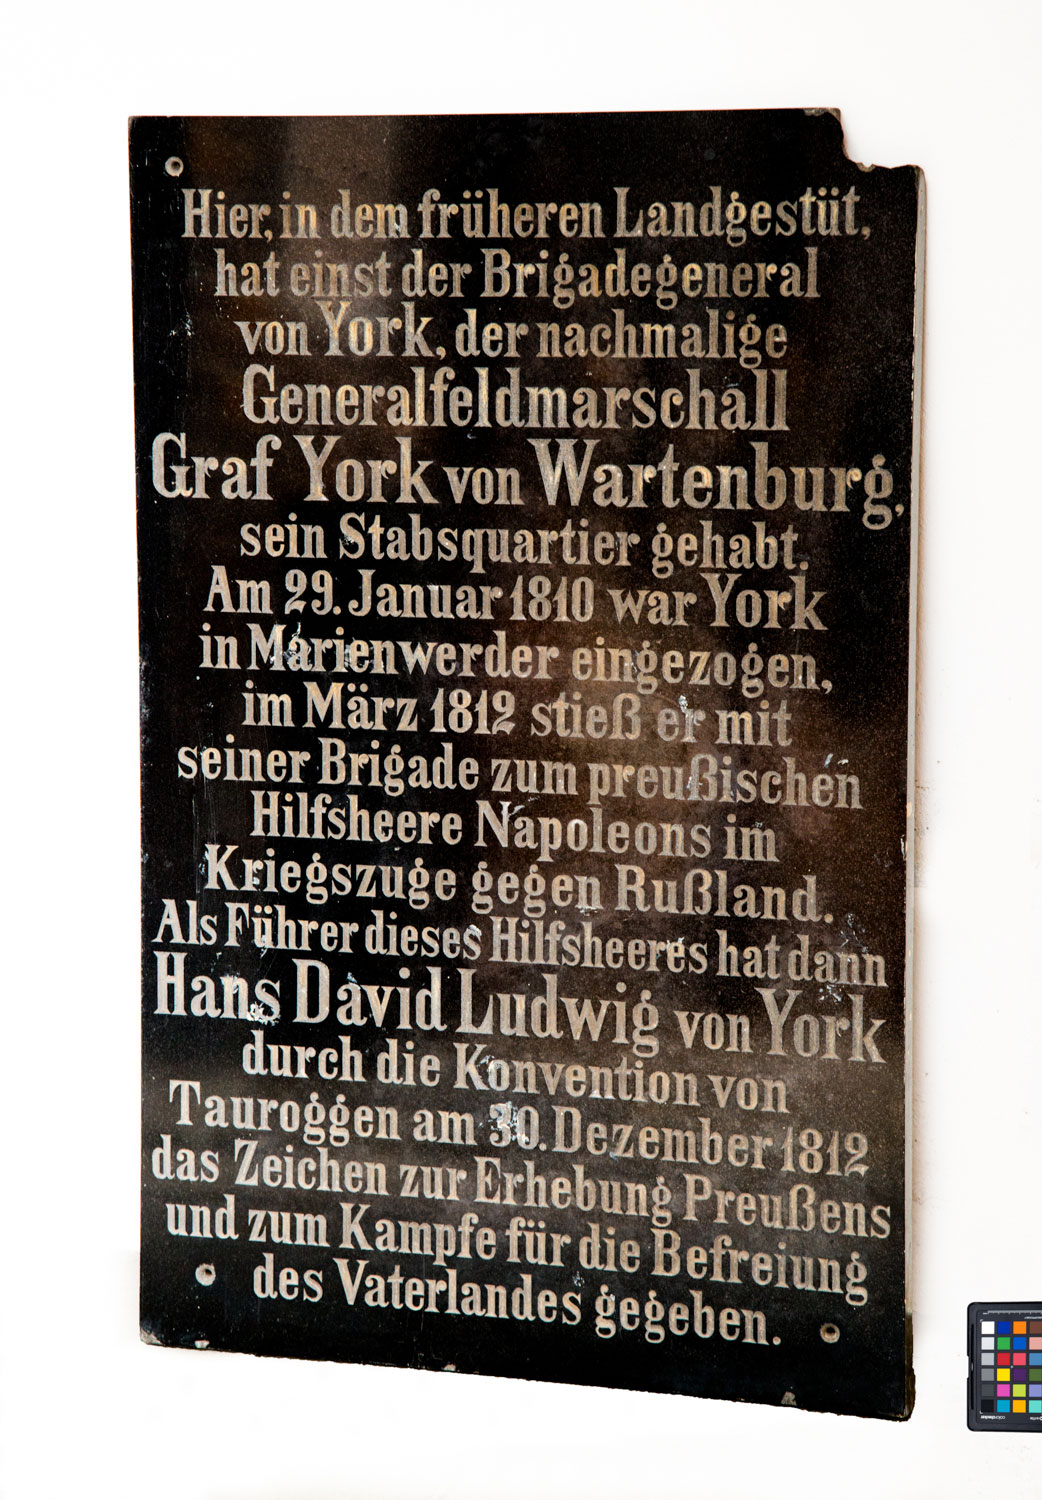 Hier, in dem früheren Landgestüt,
hat einst der Brigadegeneral
von York, der nachmalige
Generalfeldmarschall
Graf York von Wartenburg,
sein Stabsquartier gehabt.
Am 29. Januar 1810 war York
in Marienwerder eingezogen,
im März 1812 stieß er mit
seiner Brigade zum preußischen
Hilfsheere Napoleons im
Kriegszuge gegen Rußland.
Als Führer dieses Hilfsheeres hat dann
Hans David Ludwig von York
durch die Konvention von
Tauroggen am 30. Dezember 1812
das Zeichen zur Erhebung Preußens
und zum Kampfe für die Befreiung
des Vaterlandes gegeben.